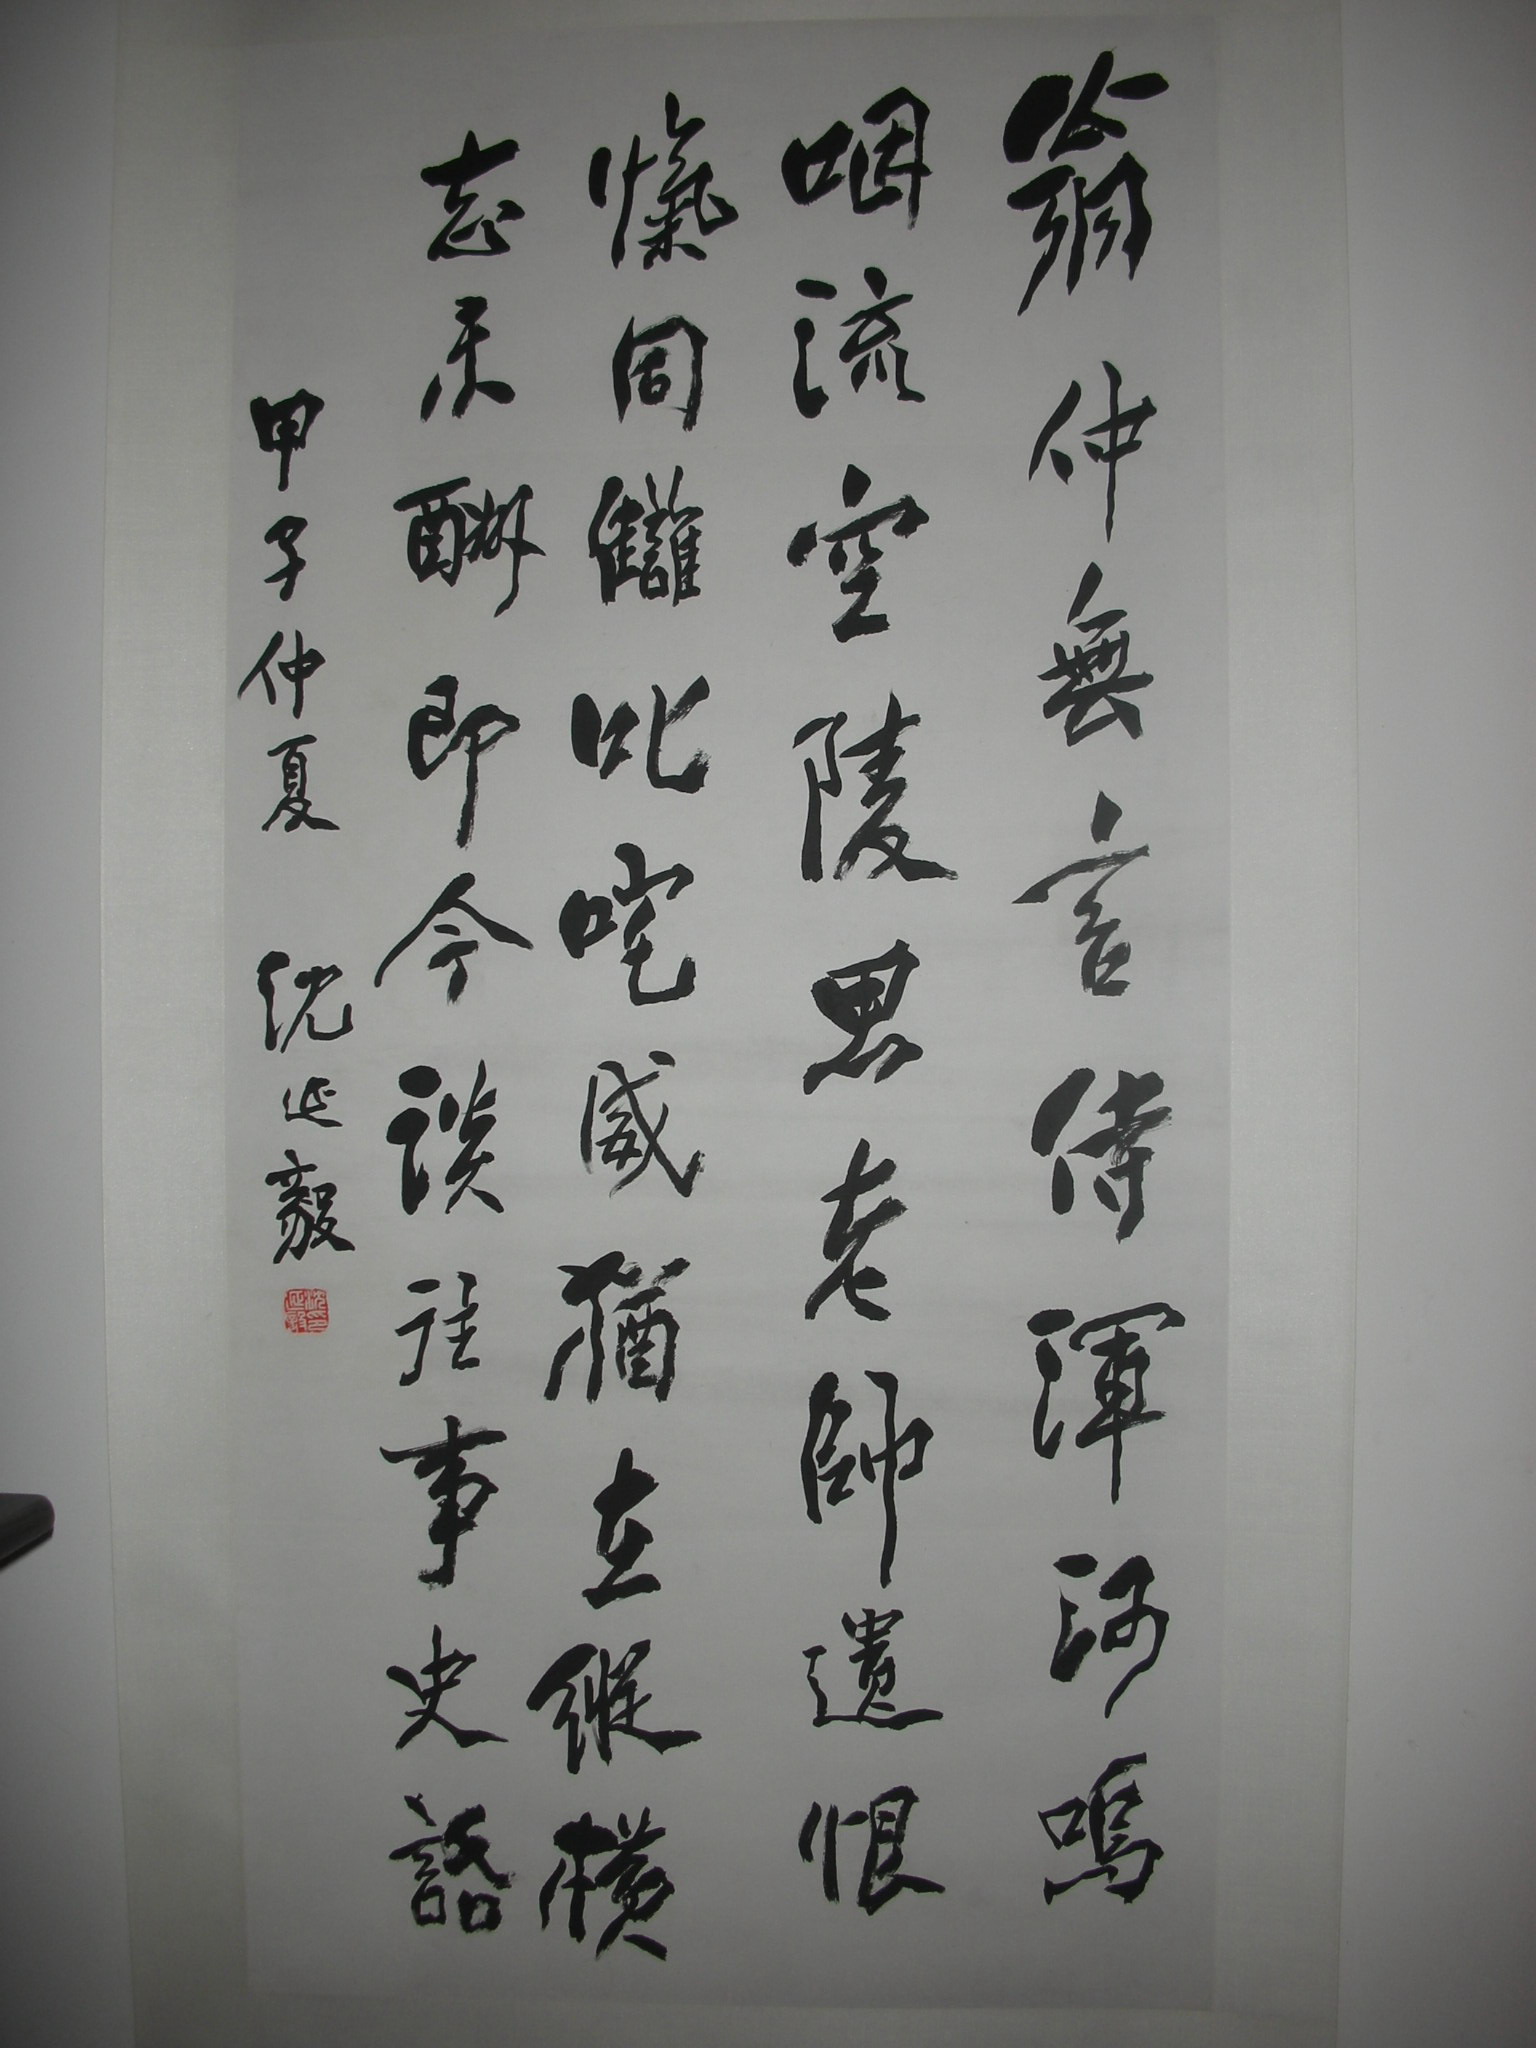 翁仲無言侍渾河鳴
咽流空陵思老帥遺恨
愾同讎叱咤威猶在縱橫
志未酬即今談往事史話
甲子仲夏 沈延毅
沈延毅印